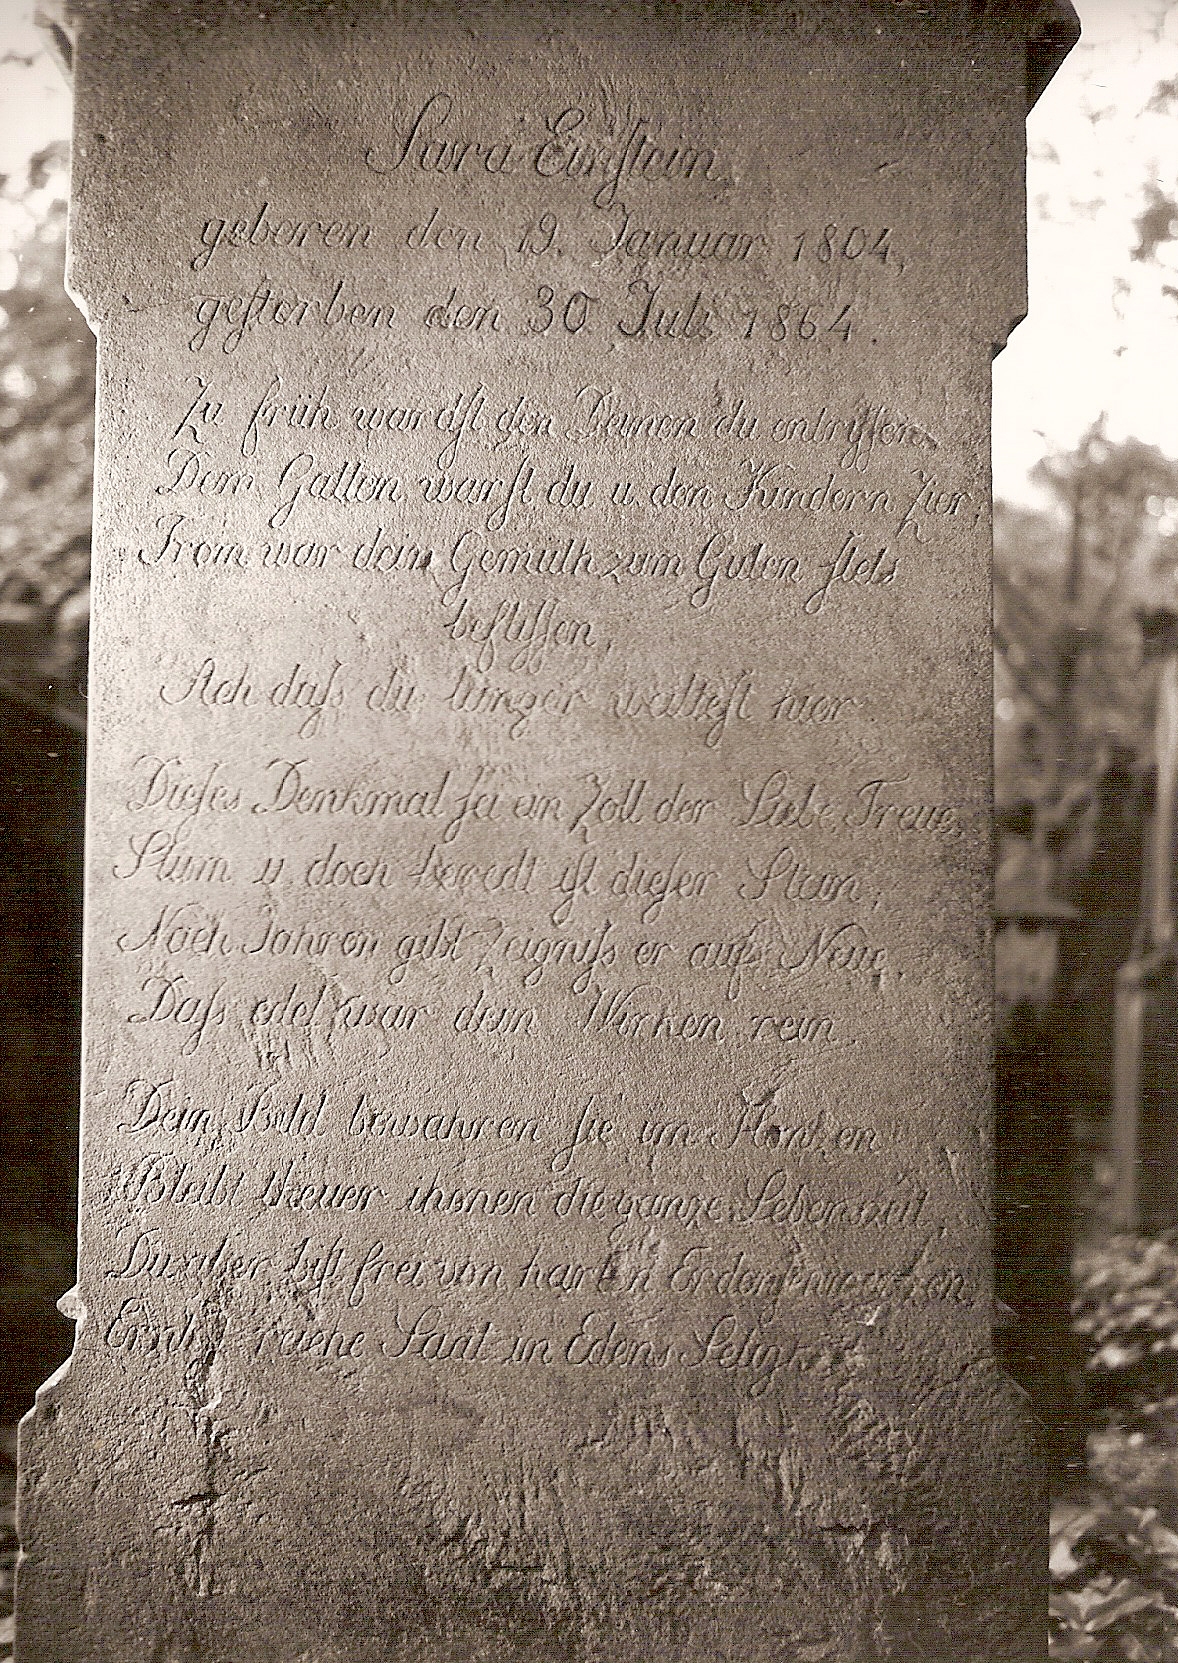 Sara Einstein
geboren den 19. Januar 1804,
gestorben den 30. Juli 1864.
Zu früh wardst den Deinen du entrissen
Dem Gatten warst du u. den Kindern Zier,
From war dein Gemüth zum Guten stets
beflissen,
Ach daß du länger weiltest hier
Dieses Denkmal sei ein Zoll der Liebe, Treue,
Stum u. doch beredt ist dieser Stein,
Nach Jahren gibt Zeigniß er aufs Neue,
Daß edel war dein Wirken rein
Dein Bild bewahren sie im Herzen
Bleibt theuer ihnen die ganze Lebenszeit,
bist frei von harten Erdenschmerzen,
Erntest reiche Saat in Edens Seligkeit